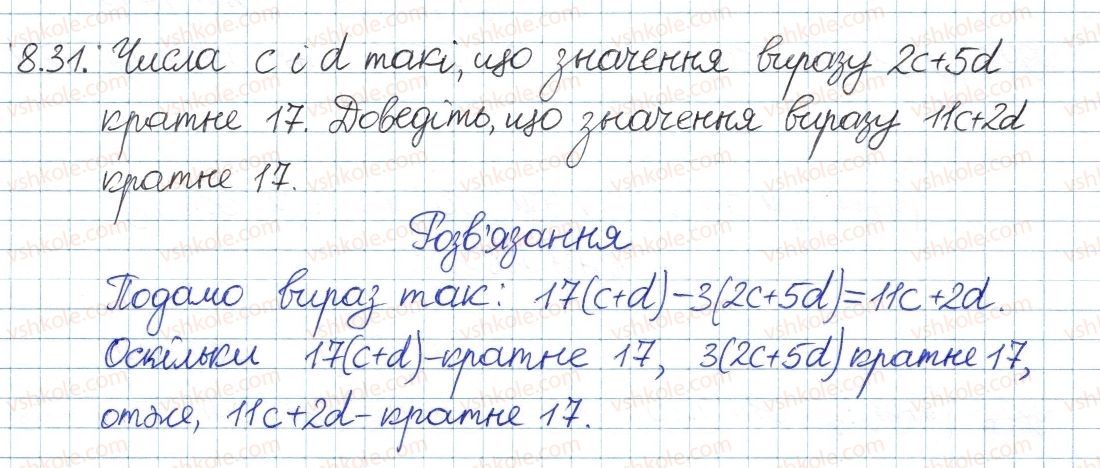 8.31. Числа c і d такі, що значення виразу 2c+5d
кратне 17. Доведіть, що значення виразу 11c+2d
кратне 17.
Розв'язання
Подамо вираз так: 17(c+d)-3(2c+5d)=11c+2d.
Оскільки 17(c+d)-кратне 17, 3(2c+5d) кратне 17,
отже, 11c+2d-кратне 17.